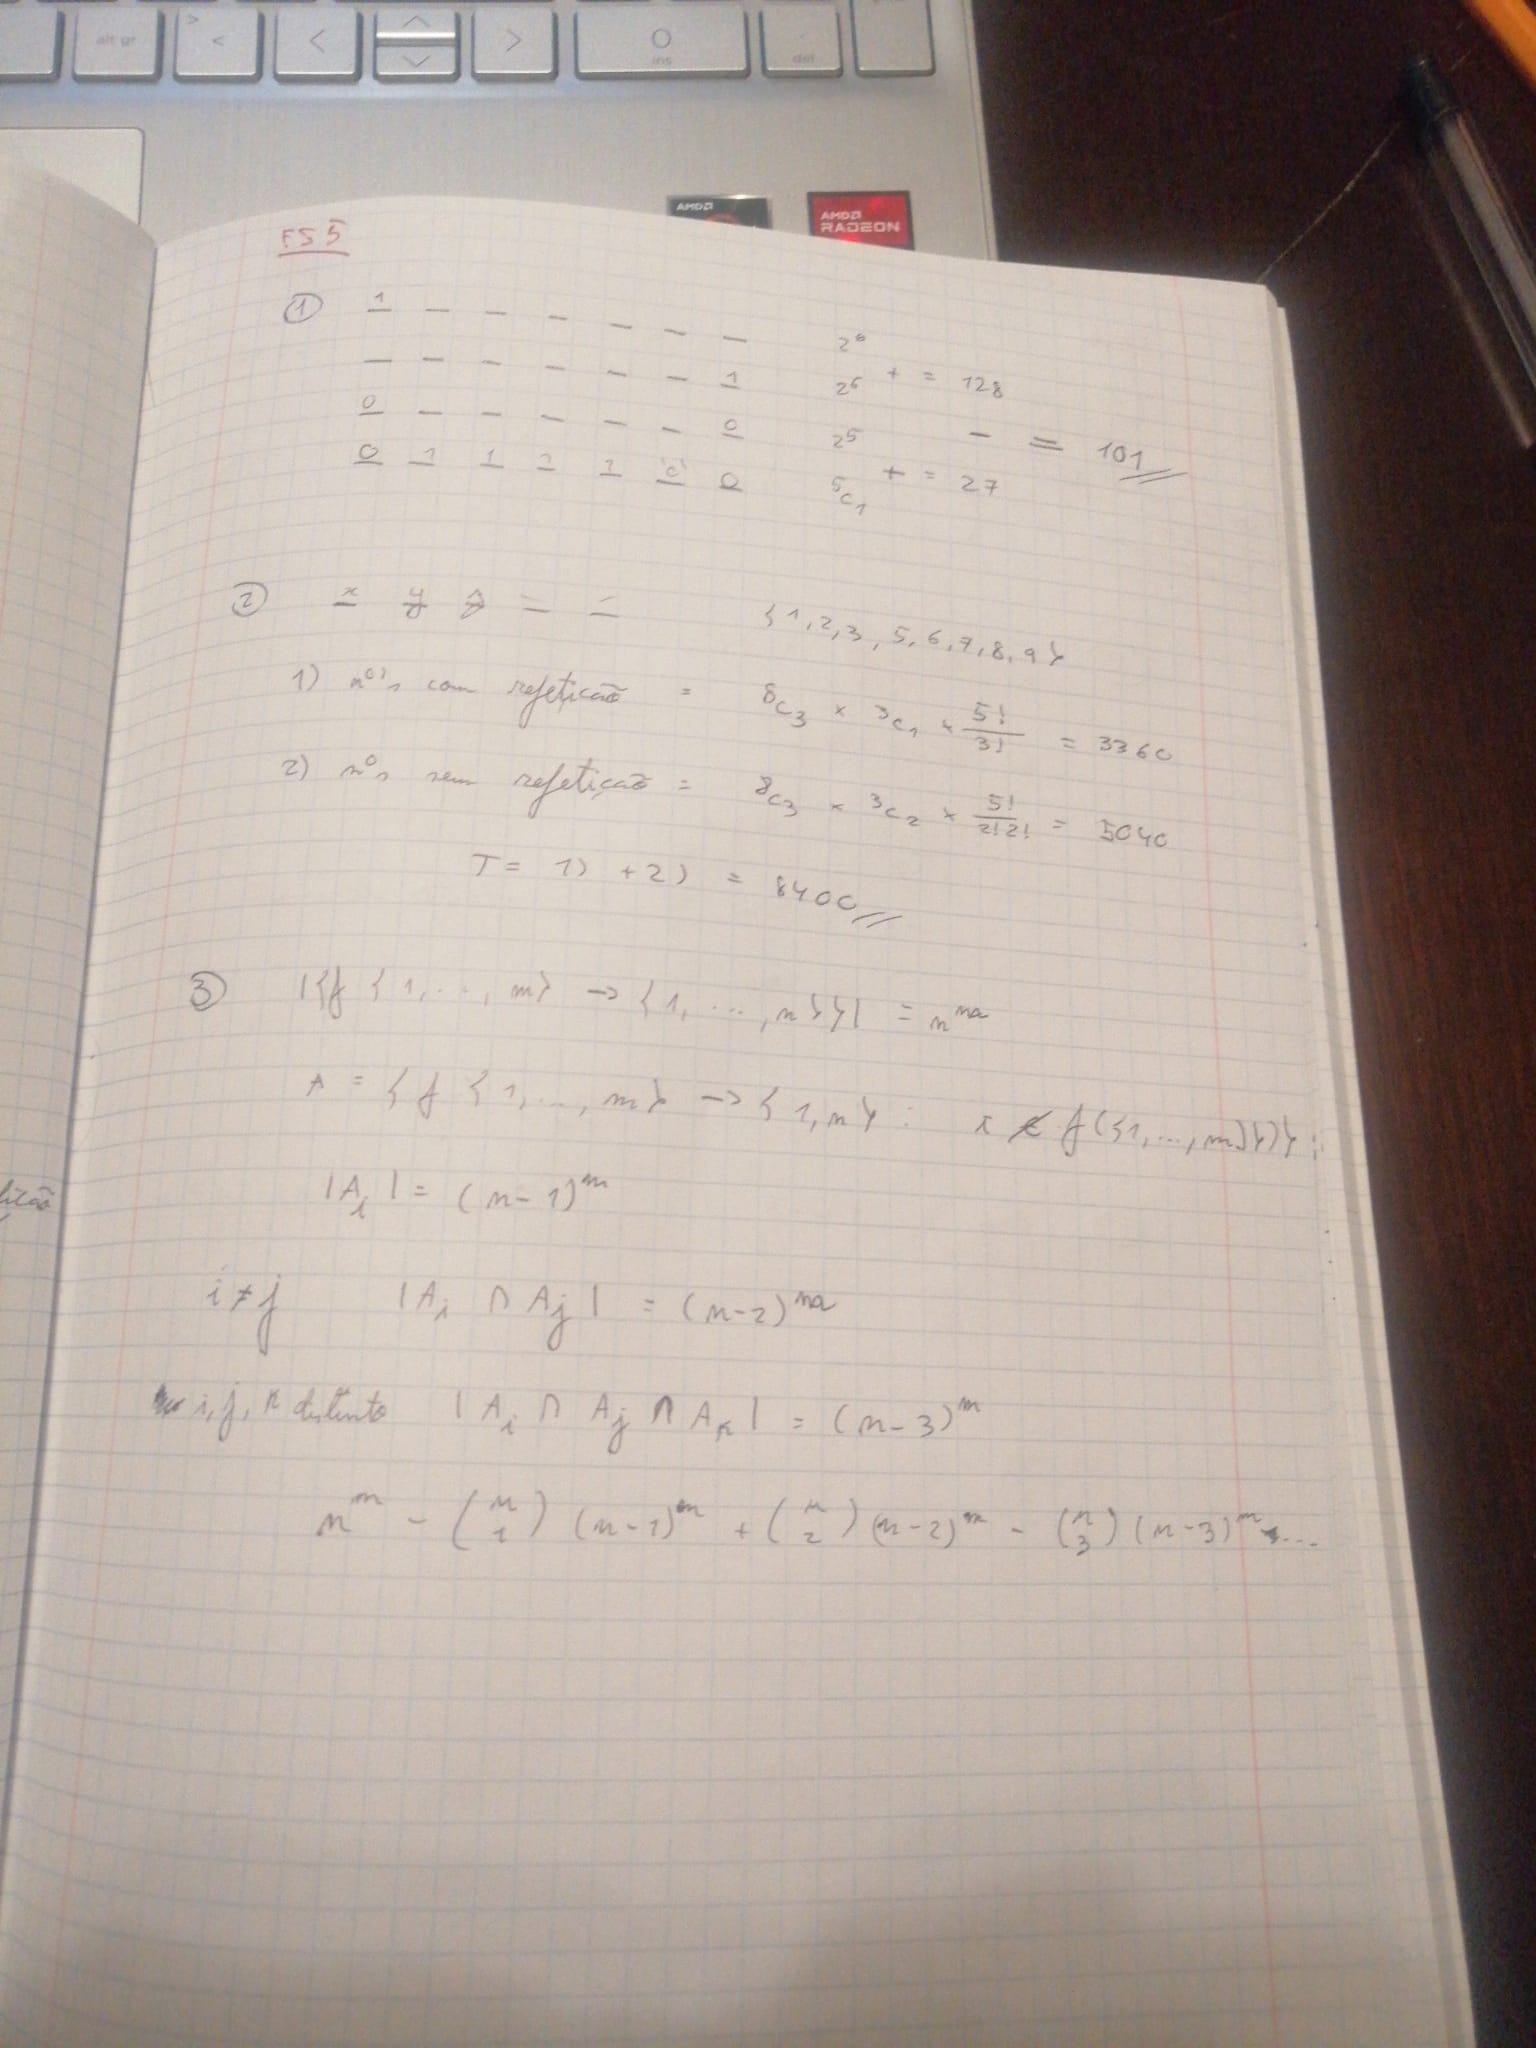 alt gr
>
<
<
>
O
ins
del
AMD
AMD
RADEON
FS 5
① 1 _ _ _ _ _ _ 2⁶
_ _ _ _ _ _ 1 2⁶ + = 128
0 _ _ _ _ _ 0 2⁵ - = 101
0 1 1 1 1 '0' 0 ⁵C₁ + = 27
② x y z _ _ {1,2,3,5,6,7,8,9}
1) nº's com repetição = ⁸C₃ × ³C₁ × 5!/3! = 3360
2) nºs sem repetição = ⁸C₃ × ³C₂ × 5!/2!2! = 5040
T = 1) + 2) = 8400
③ |{f {1,...,m} -> {1,...,n}}| = n^m
A = {f {1,...,m} -> {1,n} : i ∉ f({1,...,m})};
|Aᵢ| = (n-1)^m
i ≠ j |Aᵢ ∩ Aⱼ| = (n-2)^m
i, j, k distinto |Aᵢ ∩ Aⱼ ∩ Aₖ| = (n-3)^m
n^m - (n 1) (n-1)^m + (n 2) (n-2)^m - (n 3) (n-3)^m ...